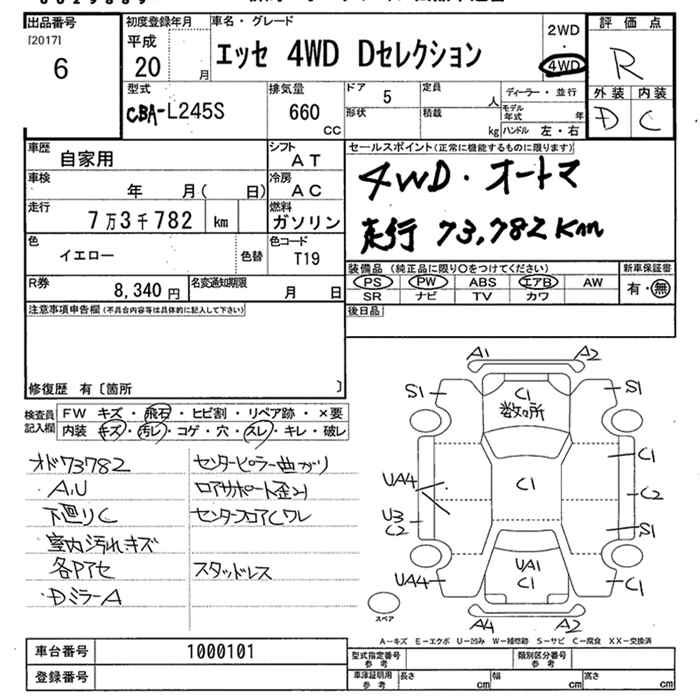 出品番号
[2017]
6
初度登録年月
平成
20 月
車名・グレード
エッセ 4WD Dセレクション
2WD
・
4WD
評価点
R
外装 内装
D C
型式
CBA-L245S
排気量
660
CC
ドア
5
形状
定員
人
積載
kg
ディーラー・並行
モデル年式 年
ハンドル 左・右
車歴
自家用
シフト
AT
車検
年 月( 日)
冷房
AC
走行
7万3千782 km
燃料
ガソリン
色
イエロー
色替
色コード
T19
R券
8,340円
名変通知期限
月 日
セールスポイント(正常に機能するものに限ります)
4WD・オートマ
走行 73,782Km
装備品(純正品に限り○をつけてください)
PS PW ABS エアB AW
SR ナビ TV カワ
新車保証書
有・無
注意事項申告欄(不具合内容等は具体的に記入して下さい)
後日品
修復歴 有〔箇所 〕
検査員記入欄
FW キズ・飛石・ヒビ割・リペア跡・×要
内装 キズ・汚レ・コゲ・穴・スレ・キレ・破レ
オド73782
A.U
下廻りC
室内汚れキズ
各Pアセ
・DミラーA
センターピラー曲がり
ロアサポート歪ミ
センターフロアCワレ
スタッドレス
A1 A2
S1 C1 S1
数ヶ所
C1
UA4 C1 C2
U3
C2 S1
UA4 UA1 C1
C1
A4 A2
スペア
A-キズ E-エクボ U-凹み W-補修跡 S-サビ C-腐食 XX-交換済
車台番号
1000101
登録番号
型式指定番号
参考
類別区分番号
参考
車庫証明用
参考
長さ cm 幅 cm 高さ cm